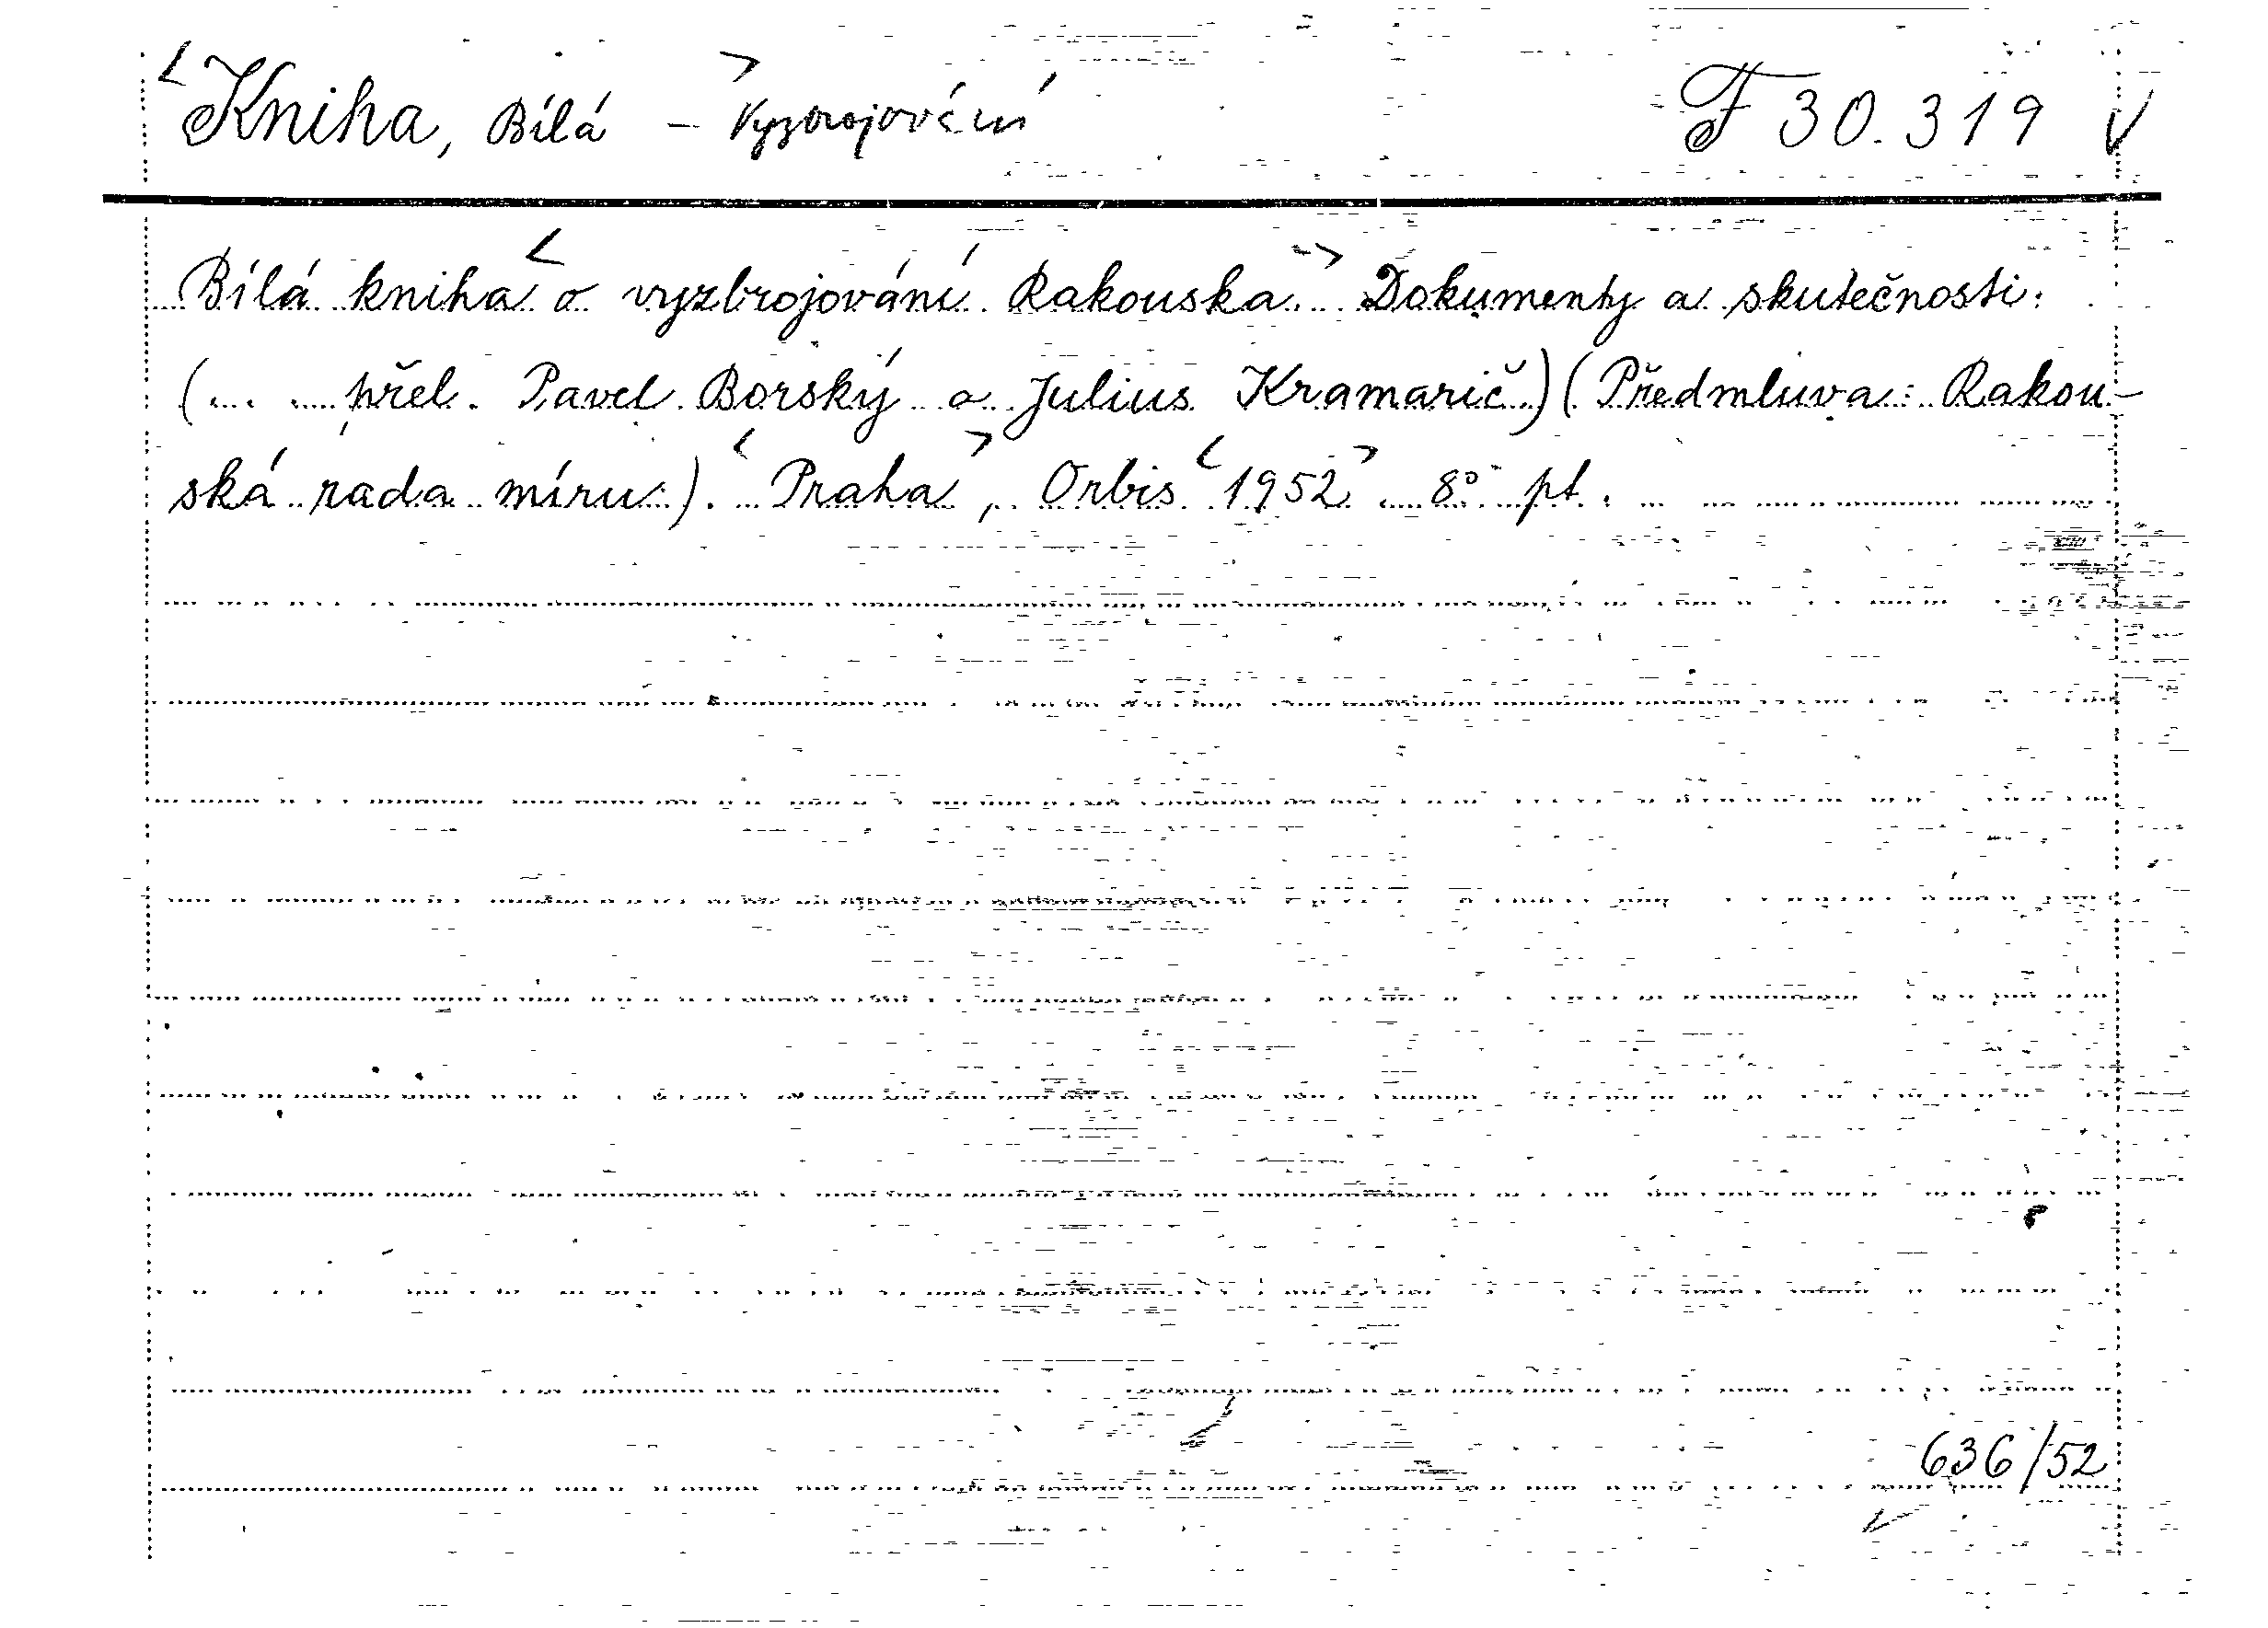 <Kniha, Bílá> – Vyzbrojování F 30.319 V
Bílá kniha <o vyzbrojování Rakouska.> Dokumenty a skutečnosti.
(... ... přel. Pavel Borský a Julius Kramarič.) (Předmluva: Rakou-
ská rada míru.). <Praha>, Orbis <1952>. 8° pt.
636/52